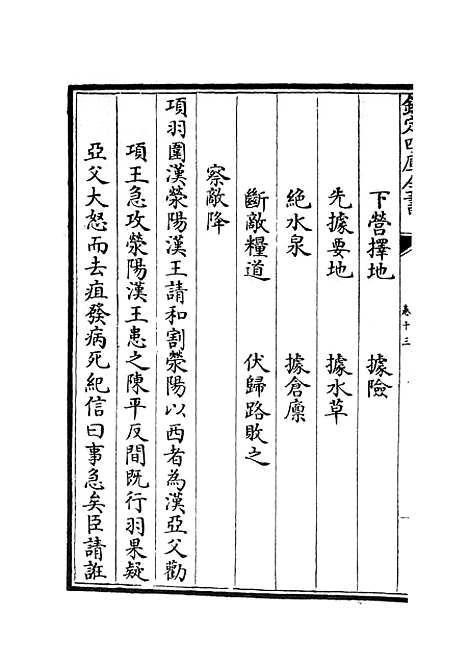 欽定四庫全書
卷十三
下營擇地 據險
先據要地 據水草
絶水泉 據倉廩
斷敵糧道 伏歸路敗之
察敵降
項羽圍漢滎陽漢王請和割滎陽以西者為漢亞父勸
項王急攻滎陽漢王患之陳平反間既行羽果疑
亞父大怒而去疽發病死紀信曰事急矣臣請誑